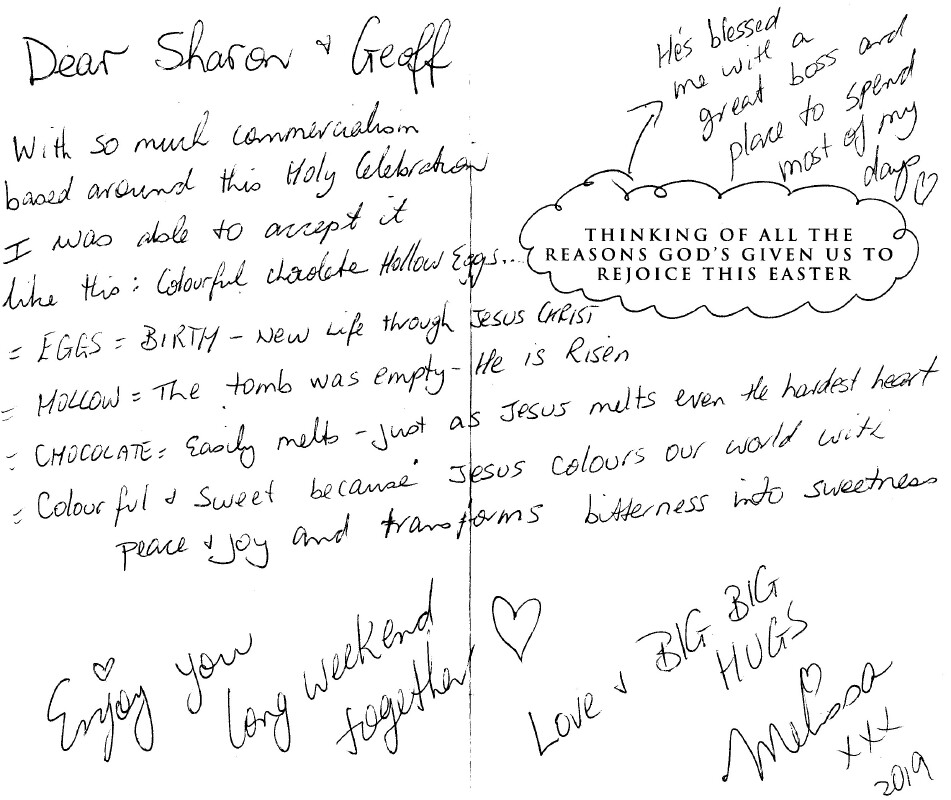 Dear Sharon & Geoff
With so much commercialism
based around this Holy Celebration
I was able to accept it
like this: Colourful chocolate Hollow Eggs...
= EGGS = BIRTH - New Life through Jesus CHRIST
= HOLLOW = The tomb was empty - He is Risen
= CHOCOLATE = Easily melts - just as Jesus melts even the hardest heart
= Colourful & sweet because Jesus colours our world with
peace & joy and transforms bitterness into sweetness
He's blessed
me with a
great boss and
place to spend
most of my
days ♡
THINKING OF ALL THE
REASONS GOD'S GIVEN US TO
REJOICE THIS EASTER
Enjoy your
long weekend
together ♡
Love & BIG BIG
HUGS
Melissa
xxx
2019